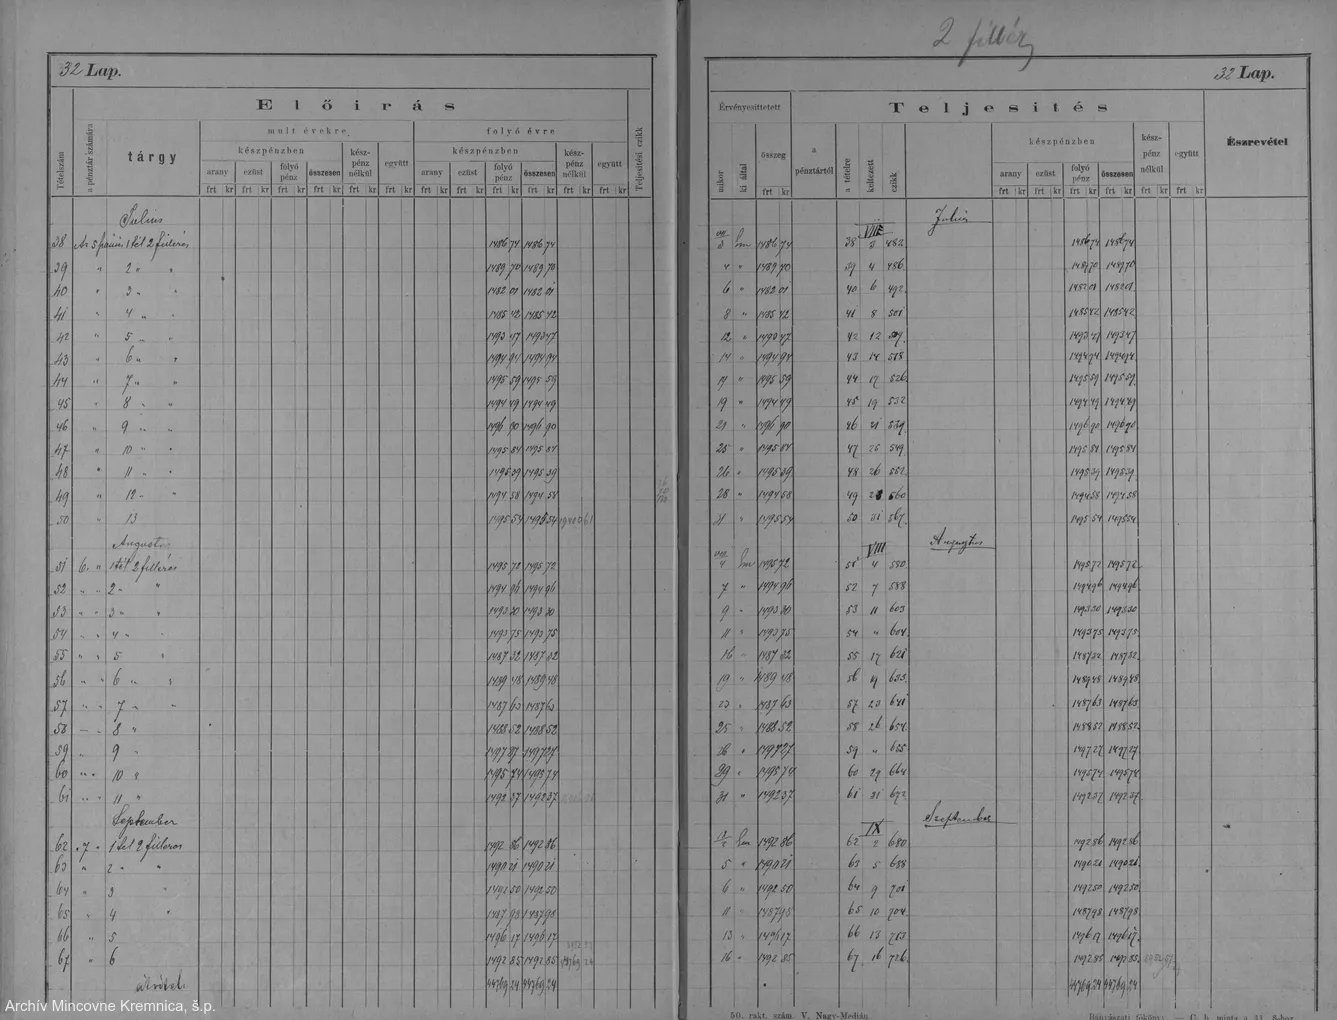 2 fillér
32 Lap.
Előirás
Tételszám
a pénztár számára
tárgy
mult évekre
folyó évre
Teljesitési czikk
készpénzben
kész-pénz nélkül
együtt
készpénzben
kész-pénz nélkül
együtt
arany ezüst folyó pénz összesen
arany ezüst folyó pénz összesen
frt kr frt kr frt kr frt kr frt kr frt kr frt kr frt kr frt kr frt kr frt kr frt kr
Julius
38 1 tét 2 filléres 1486 74 1486 74
39 " 2 " " 1489 70 1489 70
40 " 3 " " 1482 01 1482 01
41 " 4 " " 1485 42 1485 42
42 " 5 " " 1493 47 1493 47
43 6 " " 1494 94 1494 94
44 " 7 " " 1495 59 1495 59
45 " 8 " " 1494 49 1494 49
46 " 9 " " 1496 90 1496 90
47 " 10 " " 1495 84 1495 84
48 " 11 " " 1495 39 1495 39
49 " 12 " " 1494 58 1494 58
50 " 13 1495 54 1495 54
Augustus
51 6. " 1 tét 2 filléres 1495 72 1495 72
52 " " 2 " " 1494 96 1494 96
53 " " 3 " " 1493 30 1493 30
54 " " 4 " " 1493 75 1493 75
55 " " 5 " 1487 32 1487 32
56 " " 6 " " 1489 48 1489 48
57 " " 7 " " 1487 63 1487 63
58 " " 8 " 1488 52 1488 52
59 " 9 " 1497 27 1497 27
60 " " 10 " 1495 74 1495 74
61 " " 11 " 1492 37 1492 37
September
62 " 7 " 1 tét 2 filléres 1492 86 1492 86
63 " 2 " " 1490 21 1490 21
64 " 3 " 1492 50 1492 50
65 " 4 " 1487 98 1487 98
66 " 5 1496 17 1496 17
67 " 6 1492 85 1492 85 44769 24
átvitel 44769 24 44769 24
32 Lap.
Teljesités
Érvényesittetett
mikor
ki által
összeg
a pénztártól
a tételre
keltezett
czikk
készpénzben
kész-pénz nélkül
együtt
Észrevétel
arany ezüst folyó pénz összesen
frt kr frt kr frt kr frt kr frt kr frt kr frt kr
VII
Julius
3 1486 74 38 3 482 1486 74 1486 74
4 " 1489 70 39 4 486 1489 70 1489 70
6 " 1482 01 40 6 492 1482 01 1482 01
8 " 1485 42 41 8 501 1485 42 1485 42
12 " 1493 47 42 12 509 1493 47 1493 47
14 " 1494 94 43 14 518 1494 94 1494 94
17 " 1495 59 44 17 526 1495 59 1495 59
19 " 1494 49 45 19 532 1494 49 1494 49
21 " 1496 90 46 21 539 1496 90 1496 90
25 " 1495 84 47 25 549 1495 84 1495 84
26 " 1495 39 48 26 552 1495 39 1495 39
28 " 1494 58 49 28 560 1494 58 1494 58
31 " 1495 54 50 31 567 1495 54 1495 54
VIII
Augustus
4 1495 72 51 4 580 1495 72 1495 72
7 " 1494 96 52 7 588 1494 96 1494 96
9 " 1493 30 53 11 603 1493 30 1493 30
11 " 1493 75 54 " 604 1493 75 1493 75
16 " 1487 32 55 17 621 1487 32 1487 32
19 " 1489 48 56 19 633 1489 48 1489 48
23 " 1487 63 57 23 641 1487 63 1487 63
25 " 1488 52 58 26 654 1488 52 1488 52
26 " 1497 27 59 " 655 1497 27 1497 27
29 " 1495 74 60 29 664 1495 74 1495 74
31 " 1492 37 61 31 672 1492 37 1492 37
IX
Szeptember
1492 86 62 2 680 1492 86 1492 86
5 " 1490 21 63 5 688 1490 21 1490 21
6 " 1492 50 64 9 701 1492 50 1492 50
11 " 1487 98 65 10 704 1487 98 1487 98
13 " 1496 17 66 13 713 1496 17 1496 17
16 " 1492 85 67 16 726 1492 85 1492 85
44769 24 44769 24
50. rakt. szám. V. Nagy-Medián.
Bányászati főköny: — C. b. minta a 31. §-hoz
Archív Mincovne Kremnica, š.p.